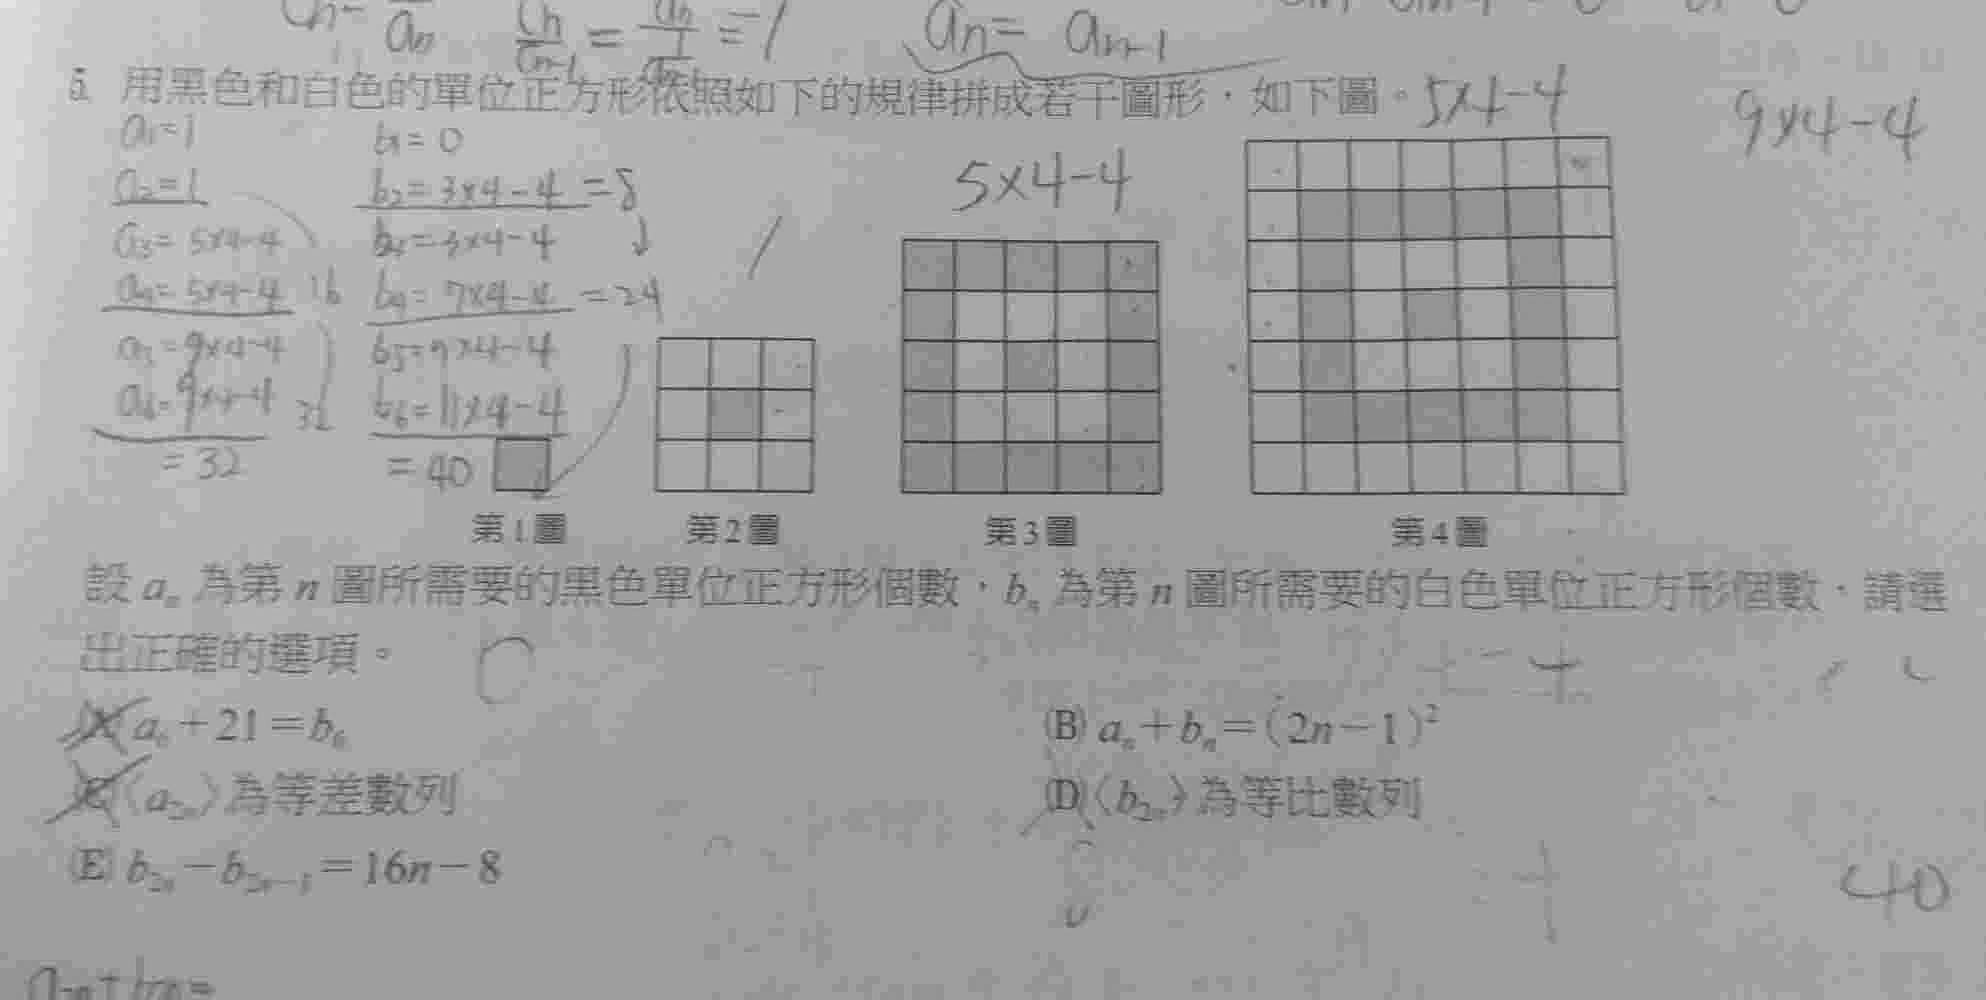 aₙ
= -1
aₙ = aₙ₋₁
5. 用黑色和白色的單位正方形依照如下的規律拼成若干圖形，如下圖。
5×4-4
9×4-4
a₁=1
b₁=0
a₂=1
b₂=3×4-4=8
5×4-4
a₃=5×4-4
b₃=3×4-4
a₄=5×4-4 16
b₄=7×4-4=24
a₅=9×4-4
b₅=9×4-4
a₆=9×4-4 32
b₆=11×4-4
=32
=40
第1圖 第2圖 第3圖 第4圖
設 aₙ 為第 n 圖所需要的黑色單位正方形個數，bₙ 為第 n 圖所需要的白色單位正方形個數，請選
出正確的選項。
(A) a₆+21=b₆ (B) aₙ+bₙ=(2n-1)²
(C)〈a₂ₙ〉為等差數列 (D)〈b₂ₙ〉為等比數列
(E) b₂ₙ-b₂ₙ₋₁=16n-8
40